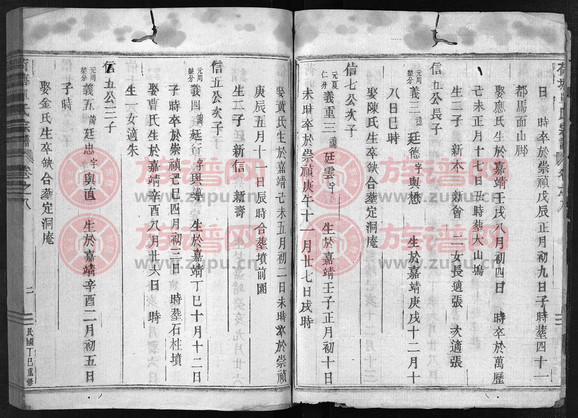 日 時卒於崇禎戊辰正月初九日子時葬四十一
都馬面山脚
娶應氏生於嘉靖壬戌八月初四日 時卒於萬歷
己未正月十七日丑時葬大山塢
生二子 新木 二女長適張 次適張
信五公長子
義三 廷德 字與懋 生於嘉靖庚戌十二月十
八日巳時
娶陳氏生卒缺合葬定洞庵
信七公次子
義重三 廷雲 字 生於嘉靖壬子正月初十日
未時卒於崇禎庚午十一月廿七日戌時
娶黃氏生於嘉靖己未五月初二日未時卒於崇禎
庚辰五月十一日辰時合葬墳前園
生二子 新信 新壽
信五公次子
義四 廷 字與 生於嘉靖丁巳十月十二日
子時卒於崇禎己巳四月初三日 時葬石柱墳
娶曹氏生於嘉靖辛酉八月廿六日 時
生 一女適朱
信五公三子
義五 廷忠 字與直 生於嘉靖辛酉二月初五日
子時
娶金氏生卒缺合葬定洞庵
卷之八
二
民國丁巳重修
族谱网
www.zupu.cn
族谱网
www.zupu.cn
族谱网
www.zupu.cn
族谱网
www.zupu.cn